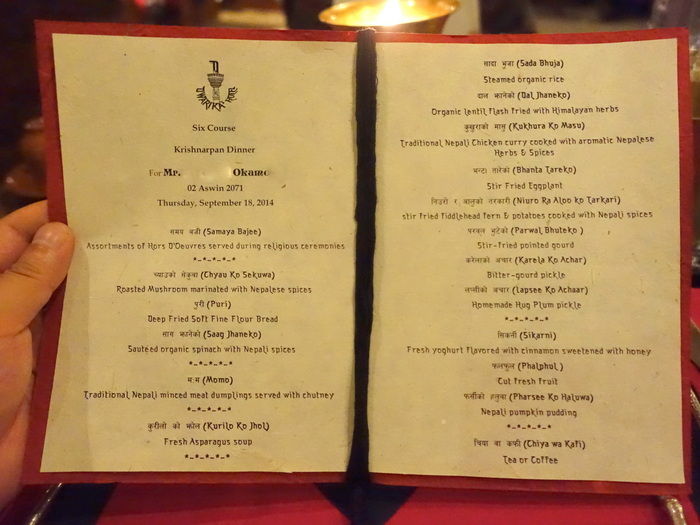 DWARIKA'S HOTEL
Six Course
Krishnarpan Dinner
For Mr. Okamo
02 Aswin 2071
Thursday, September 18, 2014
समय बजी (Samaya Bajee)
Assortments of Hors D'Oeuvres served during religious ceremonies
*-*-*-*-*
च्याउको सेकुवा (Chyau Ko Sekuwa)
Roasted Mushroom marinated with Nepalese spices
पुरी (Puri)
Deep Fried Soft Fine Flour Bread
साग झानेको (Saag Jhaneko)
Sautéed organic spinach with Nepali spices
*-*-*-*-*
म:म (Momo)
Traditional Nepali minced meat dumplings served with chutney
*-*-*-*-*
कुरीलो को झोल (Kurilo Ko Jhol)
Fresh Asparagus soup
*-*-*-*-*
सादा भुजा (Sada Bhuja)
Steamed organic rice
दाल झानेको (Dal Jhaneko)
Organic lentil flash fried with Himalayan herbs
कुखुराको मासु (Kukhura Ko Masu)
Traditional Nepali Chicken curry cooked with aromatic Nepalese
Herbs & Spices
भन्टा तारेको (Bhanta Tareko)
Stir Fried Eggplant
निउरो र आलुको तरकारी (Niuro Ra Aloo ko Tarkari)
stir fried fiddlehead fern & potatoes cooked with Nepali spices
परवल भुटेको (Parwal Bhuteko )
Stir-fried pointed gourd
करेलाको अचार (Karela Ko Achar)
Bitter-gourd pickle
लप्सीको अचार (Lapsee Ko Achaar)
Homemade Hug Plum pickle
*-*-*-*-*
सिकर्नी (Sikarni)
Fresh yoghurt flavored with cinnamon sweetened with honey
फलफुल (Phalphul )
Cut Fresh Fruit
फर्सीको हलुवा (Pharsee Ko Haluwa)
Nepali pumpkin pudding
*-*-*-*-*
चिया वा कफी (Chiya wa Kafi)
Tea or Coffee